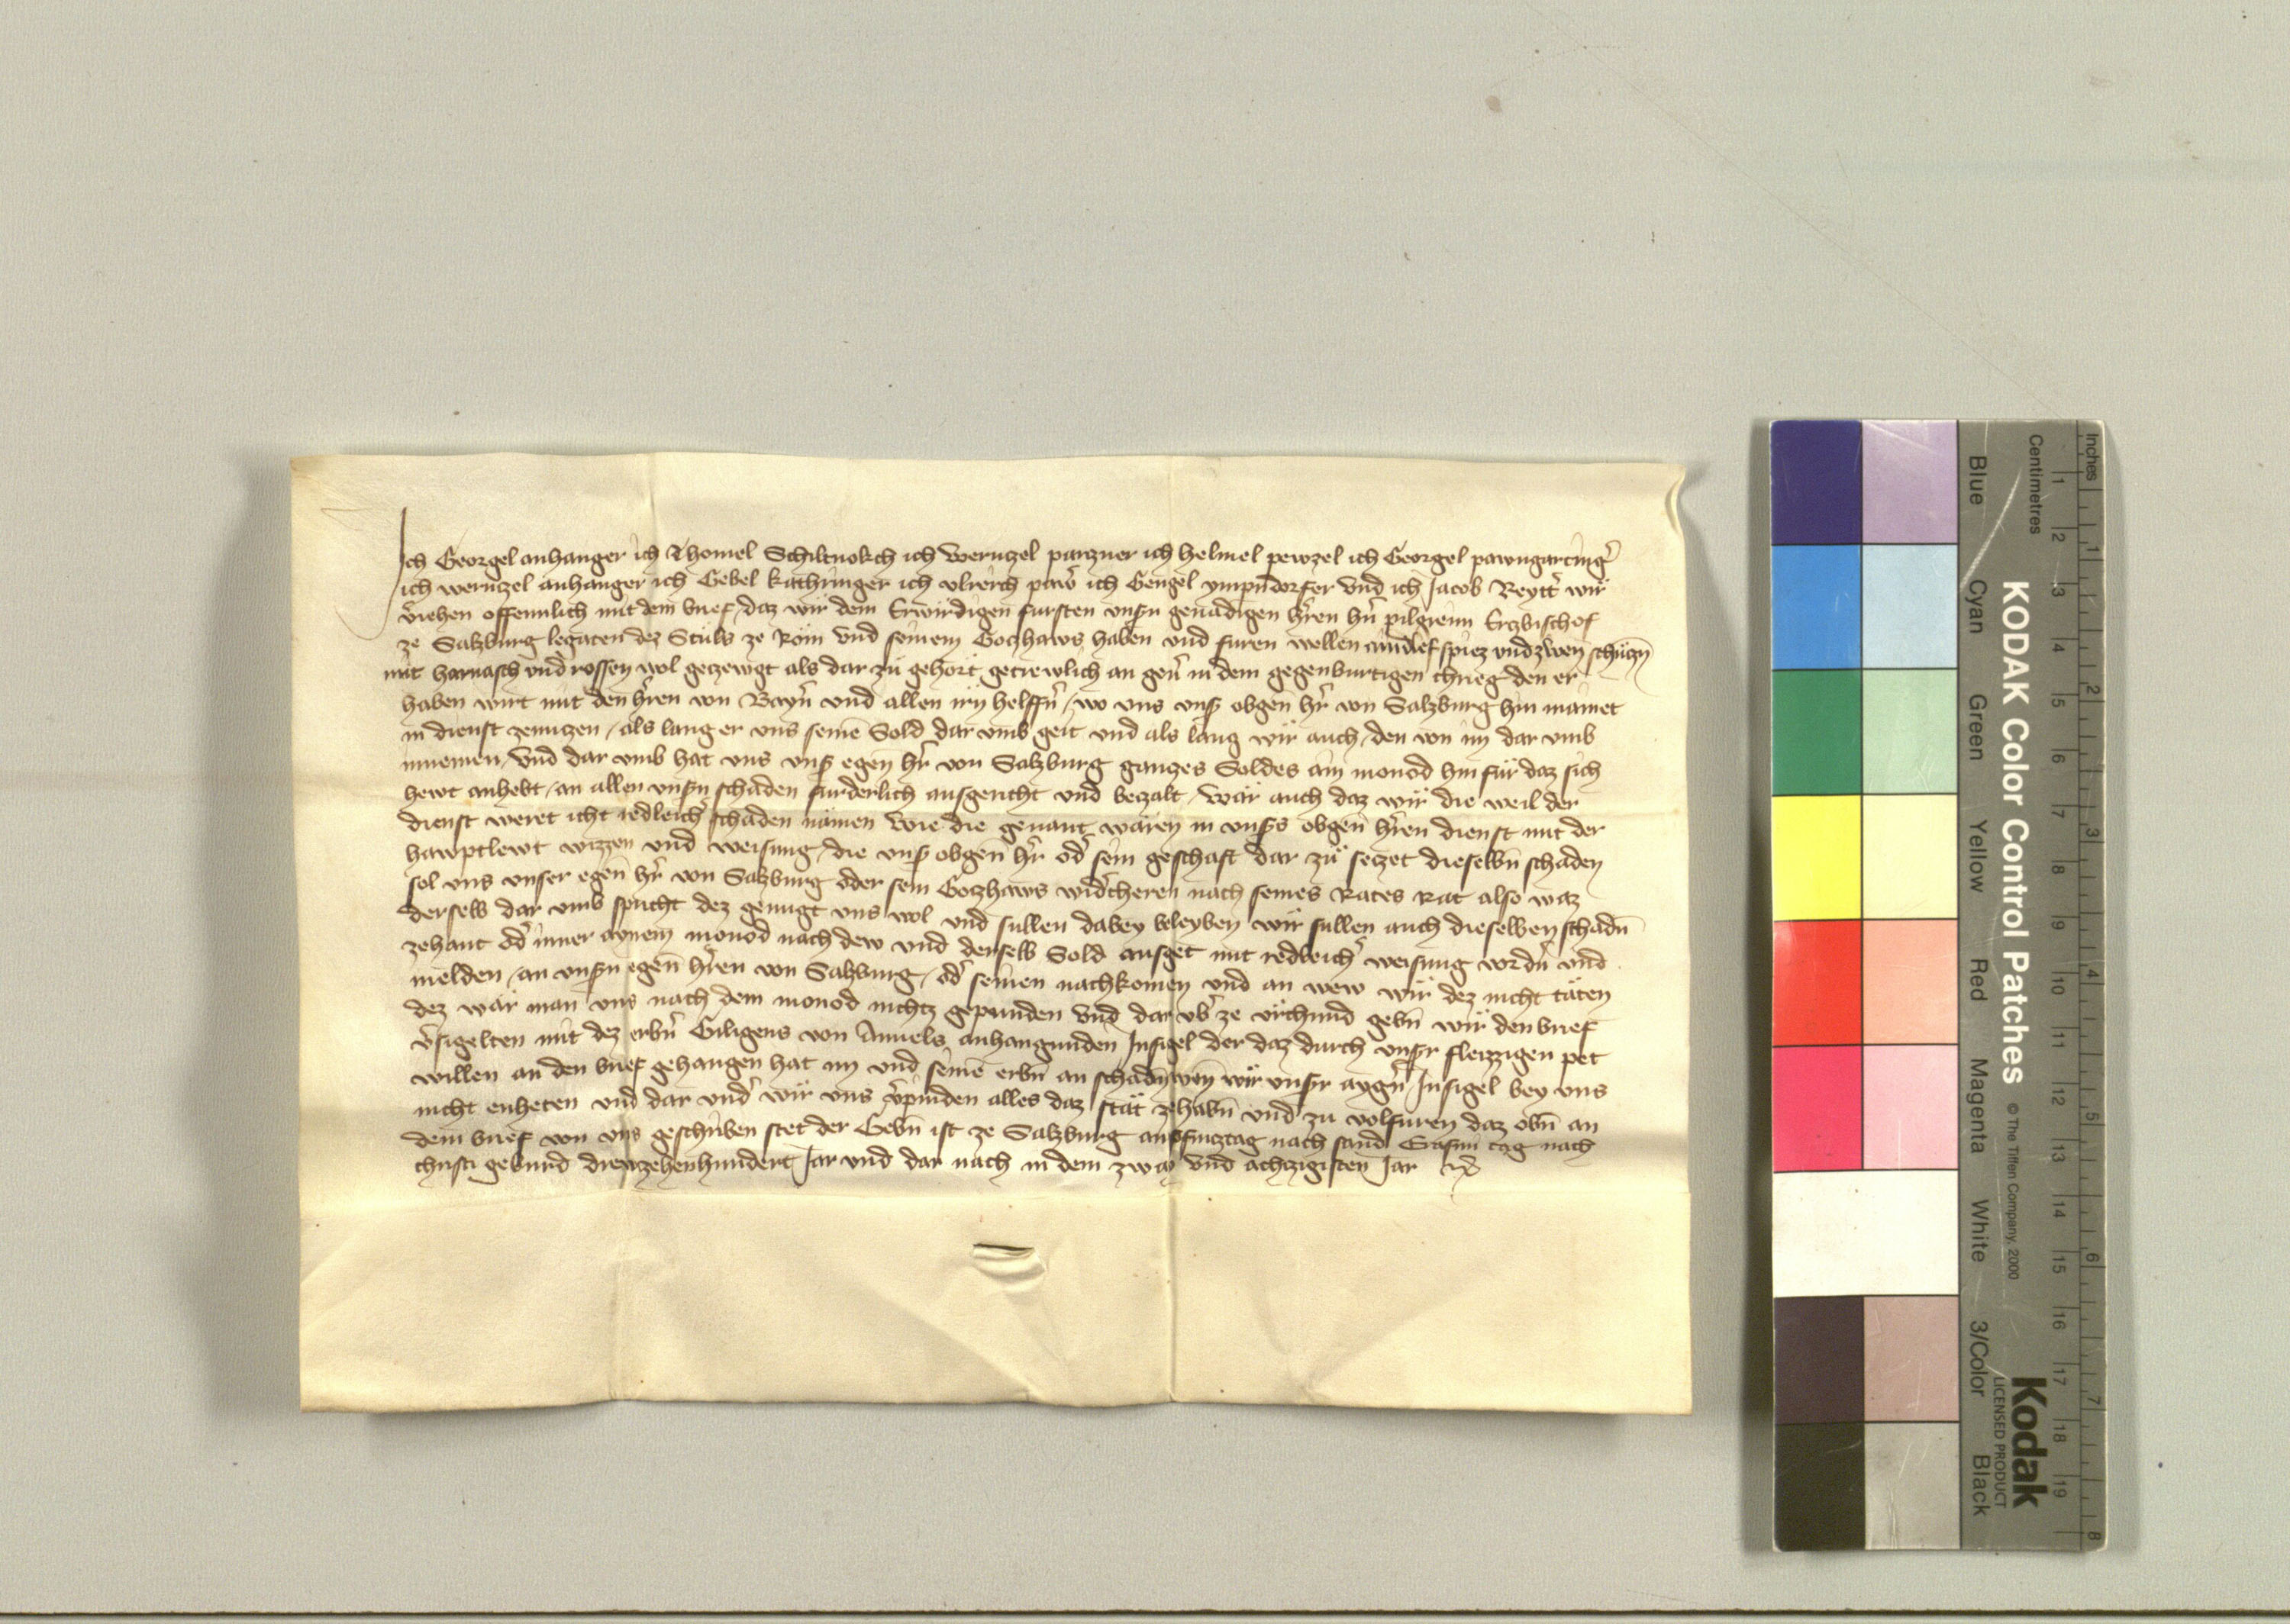 Ich Georgel anhanger ich Thomel Schiltnokch ich Wernczel panczner ich Helmel pewzel ich Georgel pawngartingˀ
ich wernczel anhanger ich Gebel kathringer ich vlreich pawˀ ich Gengel ympndorfer vnd ich Jacob Reyttˀ wir
vˀiehen offennlich mit dem brief, daz wir dem Erwirdigen fursten vnßn genadigen hˀren hˀn pilgreim Erzbischof
ze Salzburg legaten dez Stuls ze Rom vnd seinem Goczhaws haben vnd furen wellen aindlef spiez vnd zwen schüczn
mit harnasch vnd rossen wol geczewgt als dar zu gehort getrewlich an genˀ in dem gegenburtigen chrieg den er
haben wirt mit den hˀren von Bayrn vnd allen irn helffˀn, wo vns vnßˀ obgen hˀr von Salzburg hin mainet
in dienst zenuczen, als lang er vns seinē Sold dar vmb geit vnd als lang wir auch, den von im dar vmb
innemen, Vnd dar vmb hat vns vnßˀ egen hˀr von Salzburg ganczes Soldes ain monod hin für daz sich
hewt anhebt, an allen vnßn schaden furderlich ausgericht vnd beczalt, wär auch daz wir die weil der
dienst weret icht redleichˀ schaden nämen wie die genant wären in vnßs obgen hˀren dienst mit der
hawptlewt wizzen vnd weisung, die vnßˀ obgen hˀr odˀ sein geschaft dar zu seczet dieselbn schaden
sol vns vnser egen hˀr von Salzburg oder sein Goczhaws widˀcheren nach seines Rates Rat also waz
derselb dar vmb spricht dez genugt vns wol vnd sullen dabey beleyben wir sullen auch dieselben schadn
zehant odˀ inner aynem monod nach dew vnd derselb Sold ausget mit redleichˀ weisung vordˀn vnd
melden, an vnßn egen hˀren von Salzburg, odˀ seinen nachkomen vnd an wew wir dez nicht täten
dez wär man vns nach dem monod nichtz gepunden Vnd dar vbˀ ze vrchund gebn wir den brief
vˀsigelten mit dez erbˀn Giligens von anhangunden Insigel der daz durch vnßr fleizzigen pet
willen an den brief gehangen hat im vnd seinē erbn an schadn wan wir vnßr aygn Insigel bey vns
nicht enheten vnd dar vndˀ wir vns vˀpinden alles daz stät zehabn vnd zu volfuren daz obn an
dem brief von vns geschriben stet der Gebn ist ze Salzburg an pfincztag nach sand tag nach
christi geburd drewzehenhundert Jar vnd dar nach in dem zway vnd achczigisten Jar
KODAK Color Control Patches © The Tiffen Company, 2000
Kodak
LICENSED PRODUCT
Inches 1 2 3 4 5 6 7 8
Centimetres 1 2 3 4 5 6 7 8 9 10 11 12 13 14 15 16 17 18 19
Blue Cyan Green Yellow Red Magenta White 3/Color Black